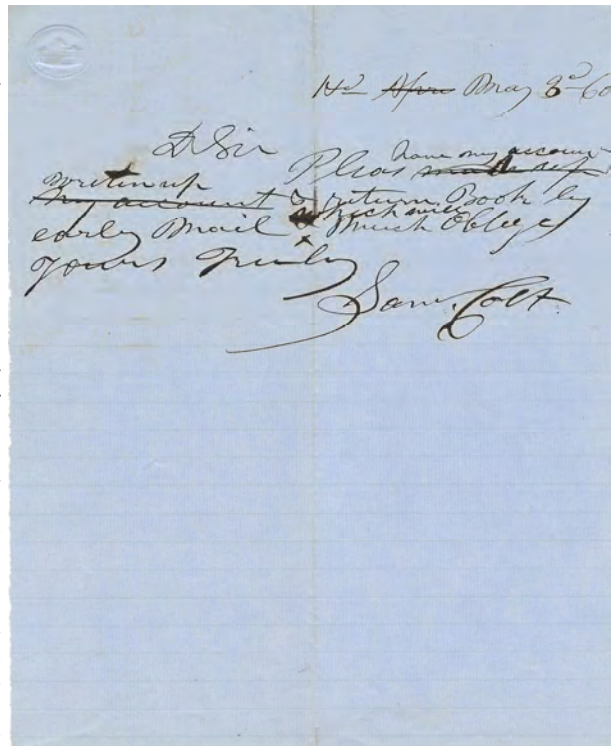 Hd May 3d 60
D Sir Pleas have my account
writen up
my account & return Book by
early Mail which will Much Oblege
Yours Truly
Sam. Colt